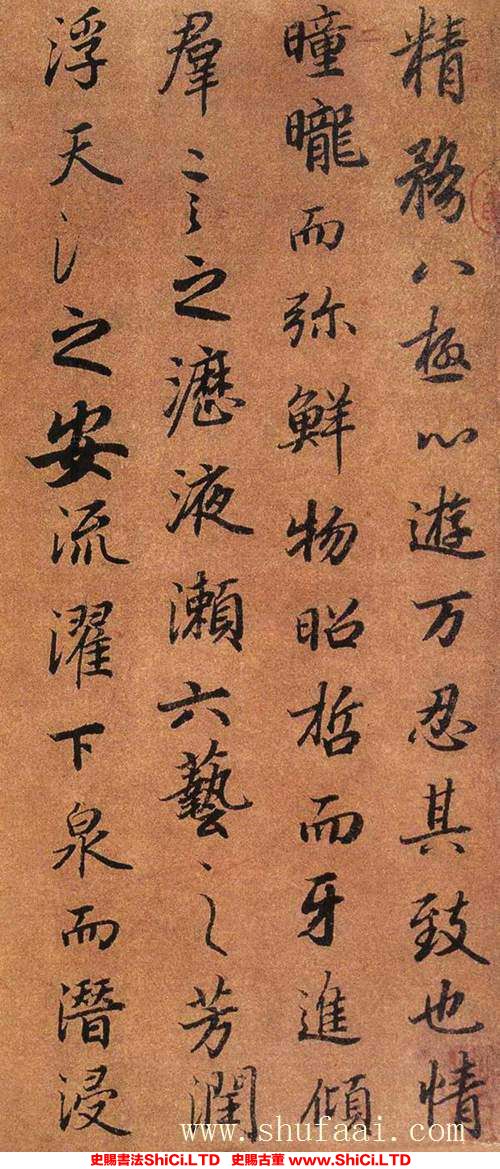 精務八極心遊万忍其致也情
曈曨而弥鮮物昭哲而牙進傾
羣言之瀝液瀨六藝之芳潤
浮天之安流濯下泉而潛浸
www.shufaai.com
史賜書法ShiCi.LTD 史賜古董 www.ShiCi.LTD